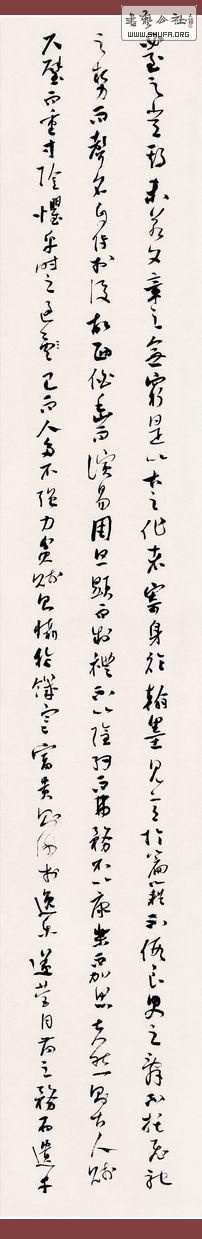 書藝公社
WWW.SHUFA.ORG
盡之営期未若文章之無窮是以古之作者寄身於翰墨見意於篇籍不假良史之辭不託飛馳
之勢而聲名自傳於後故西伯幽而演易周旦顯而制禮不以隱約而弗務不以康樂而加思夫然則古人賤
尺璧而重寸陰懼乎時之過已而人多不強力貧賤則懾於饑寒富貴則流於逸樂遂營目前之務而遺千